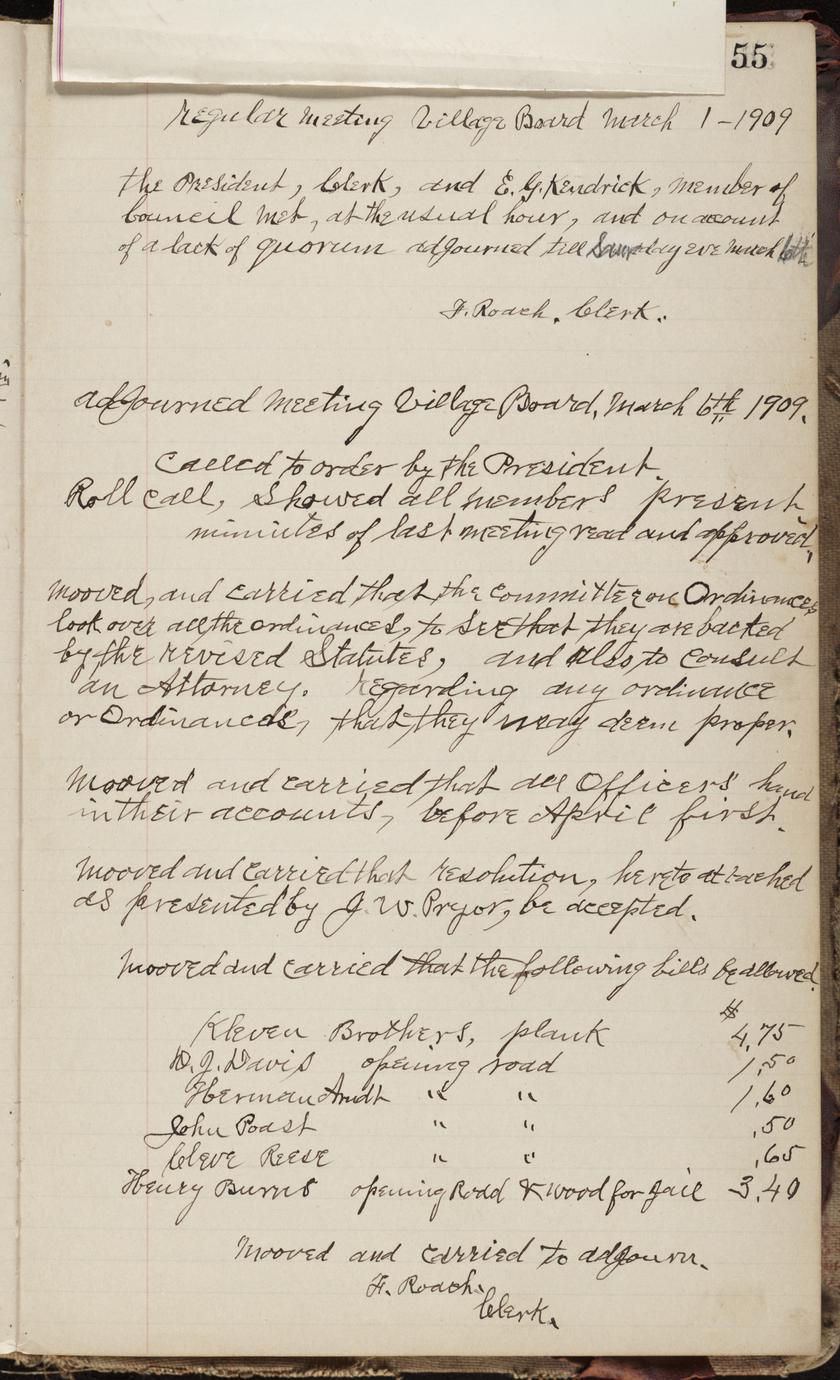 55
Regular Meeting Village Board March 1-1909
the President, Clerk, and E.G. Kendrick, member of
Council met, at the usual hour, and on account
of a lack of quorum adjourned till eve March 6th
F. Roach. Clerk.
adjourned Meeting Village Board. March 6th 1909.
Called to order by the President.
Roll call, Showed all members present
miniutes of last meeting read and approved.
Mooved, and carried that the committee on Ordinances
look over all the ordinances, to see that they are backed
by the revised Statutes, and also to consult
an Attorney. Regarding any ordinance
or Ordinances, that they may deem proper.
Mooved and carried that all Officers' hand
in their accounts, before April first.
Mooved and carried that resolution, hereto attached
as presented by J. W. Pryor, be accepted.
Mooved and carried that the following bills be allowed.
$
Kleven Brothers, plank 4,75
D.J. Davis opening road 1,50
Herman Arndt " " 1,60
John Poast " " ,50
Cleve Reese " " ,65
Henry Burns opening Road & Wood for Jail 3,40
Mooved and carried to adjourn.
F. Roach.
Clerk.